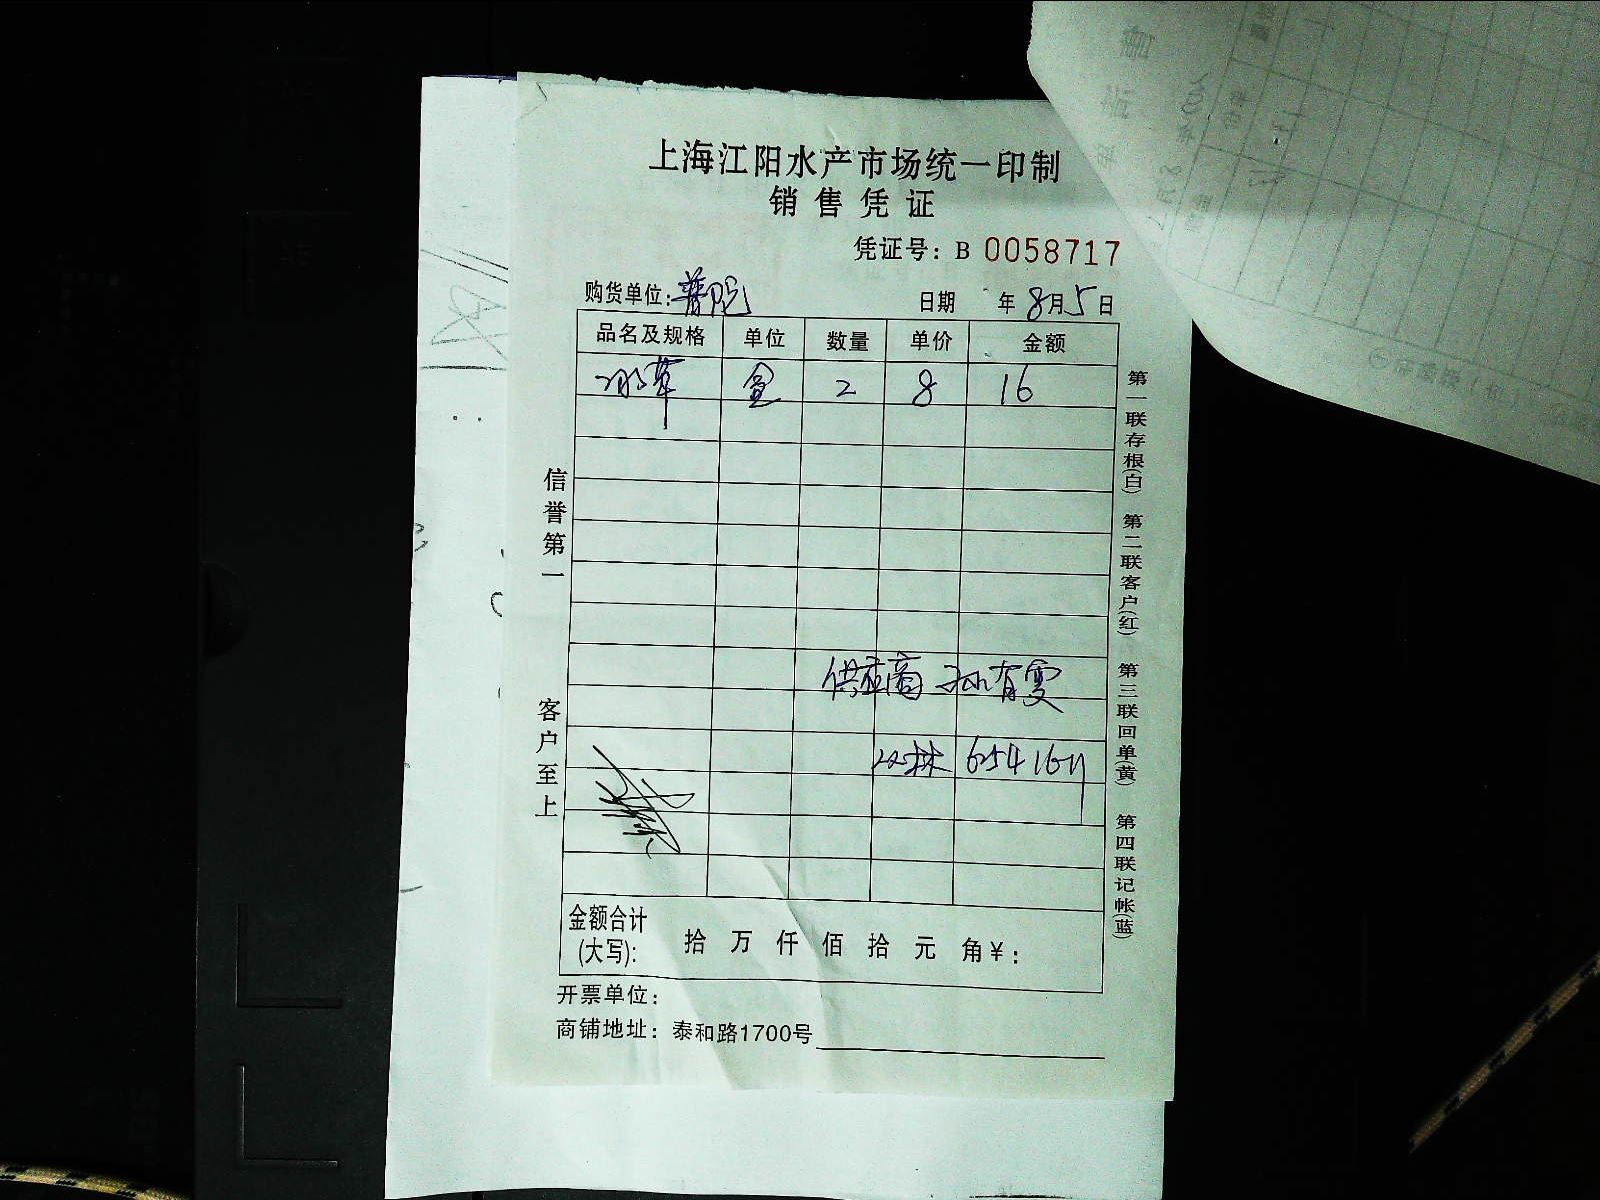 上海江阳水产市场统一印制
销售凭证
凭证号：B 0058717
购货单位：普陀 日期 年8月5日
品名及规格 单位 数量 单价 金额
冰草 盒 2 8 16
供应商 孙有雯
654164
金额合计(大写): 拾 万 仟 佰 拾 元 角 ¥:
开票单位：
商铺地址：泰和路1700号
信誉第一 客户至上
第一联存根(白) 第二联客户(红) 第三联回单(黄) 第四联记帐(蓝)